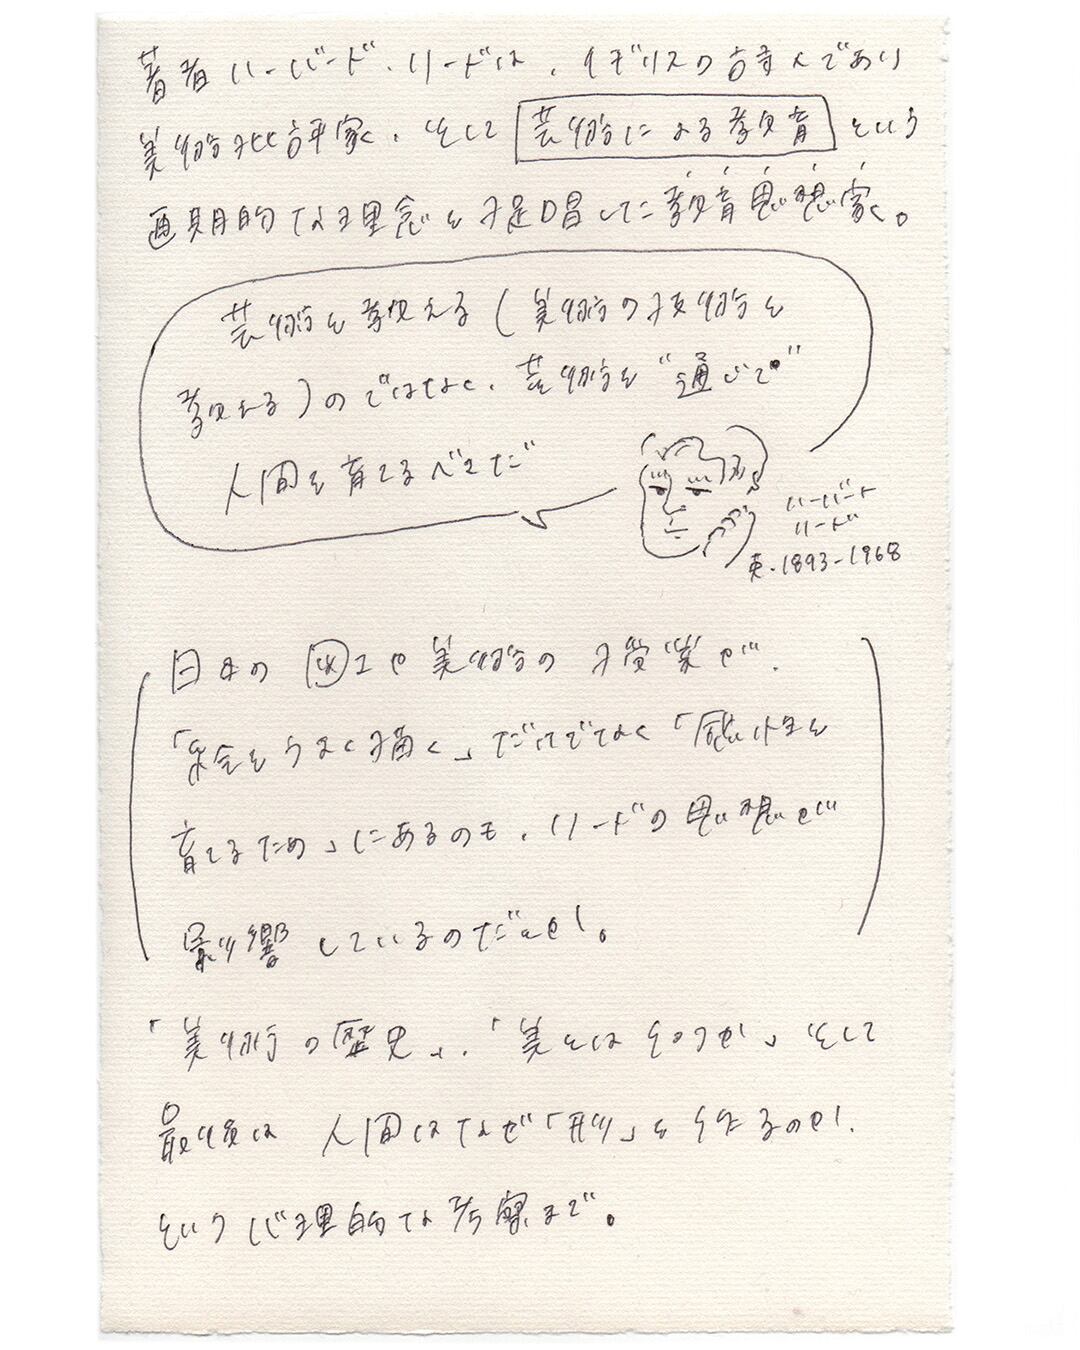 著者ハーバード・リードは、イギリスの詩人であり
美術批評家、そして 芸術による教育 という
画期的な理念を提唱した教育思想家。
芸術を教える(美術の技術を
教える)のではなく、芸術を“通じて”
人間を育てるべきだ
ハーバート
リード
英・1893-1968
日本の図工や美術の授業が、
「絵をうまく描く」だけでなく「感性を
育てるため」にあるのも、リードの思想が
影響しているのだとか!。
「美術の歴史」、「美とはそのつか」そして
最後は 人間はなぜ「形」を作るのか!、
という心理的な考察まで。